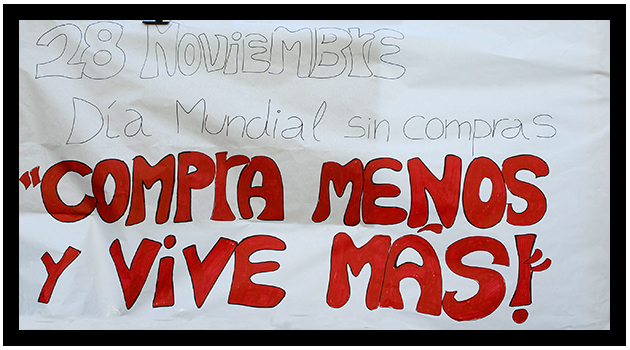 28 NoViEMBrE
Día Mundial sin compras
"COMPrA MENOS
Y ViVE MÁS!"